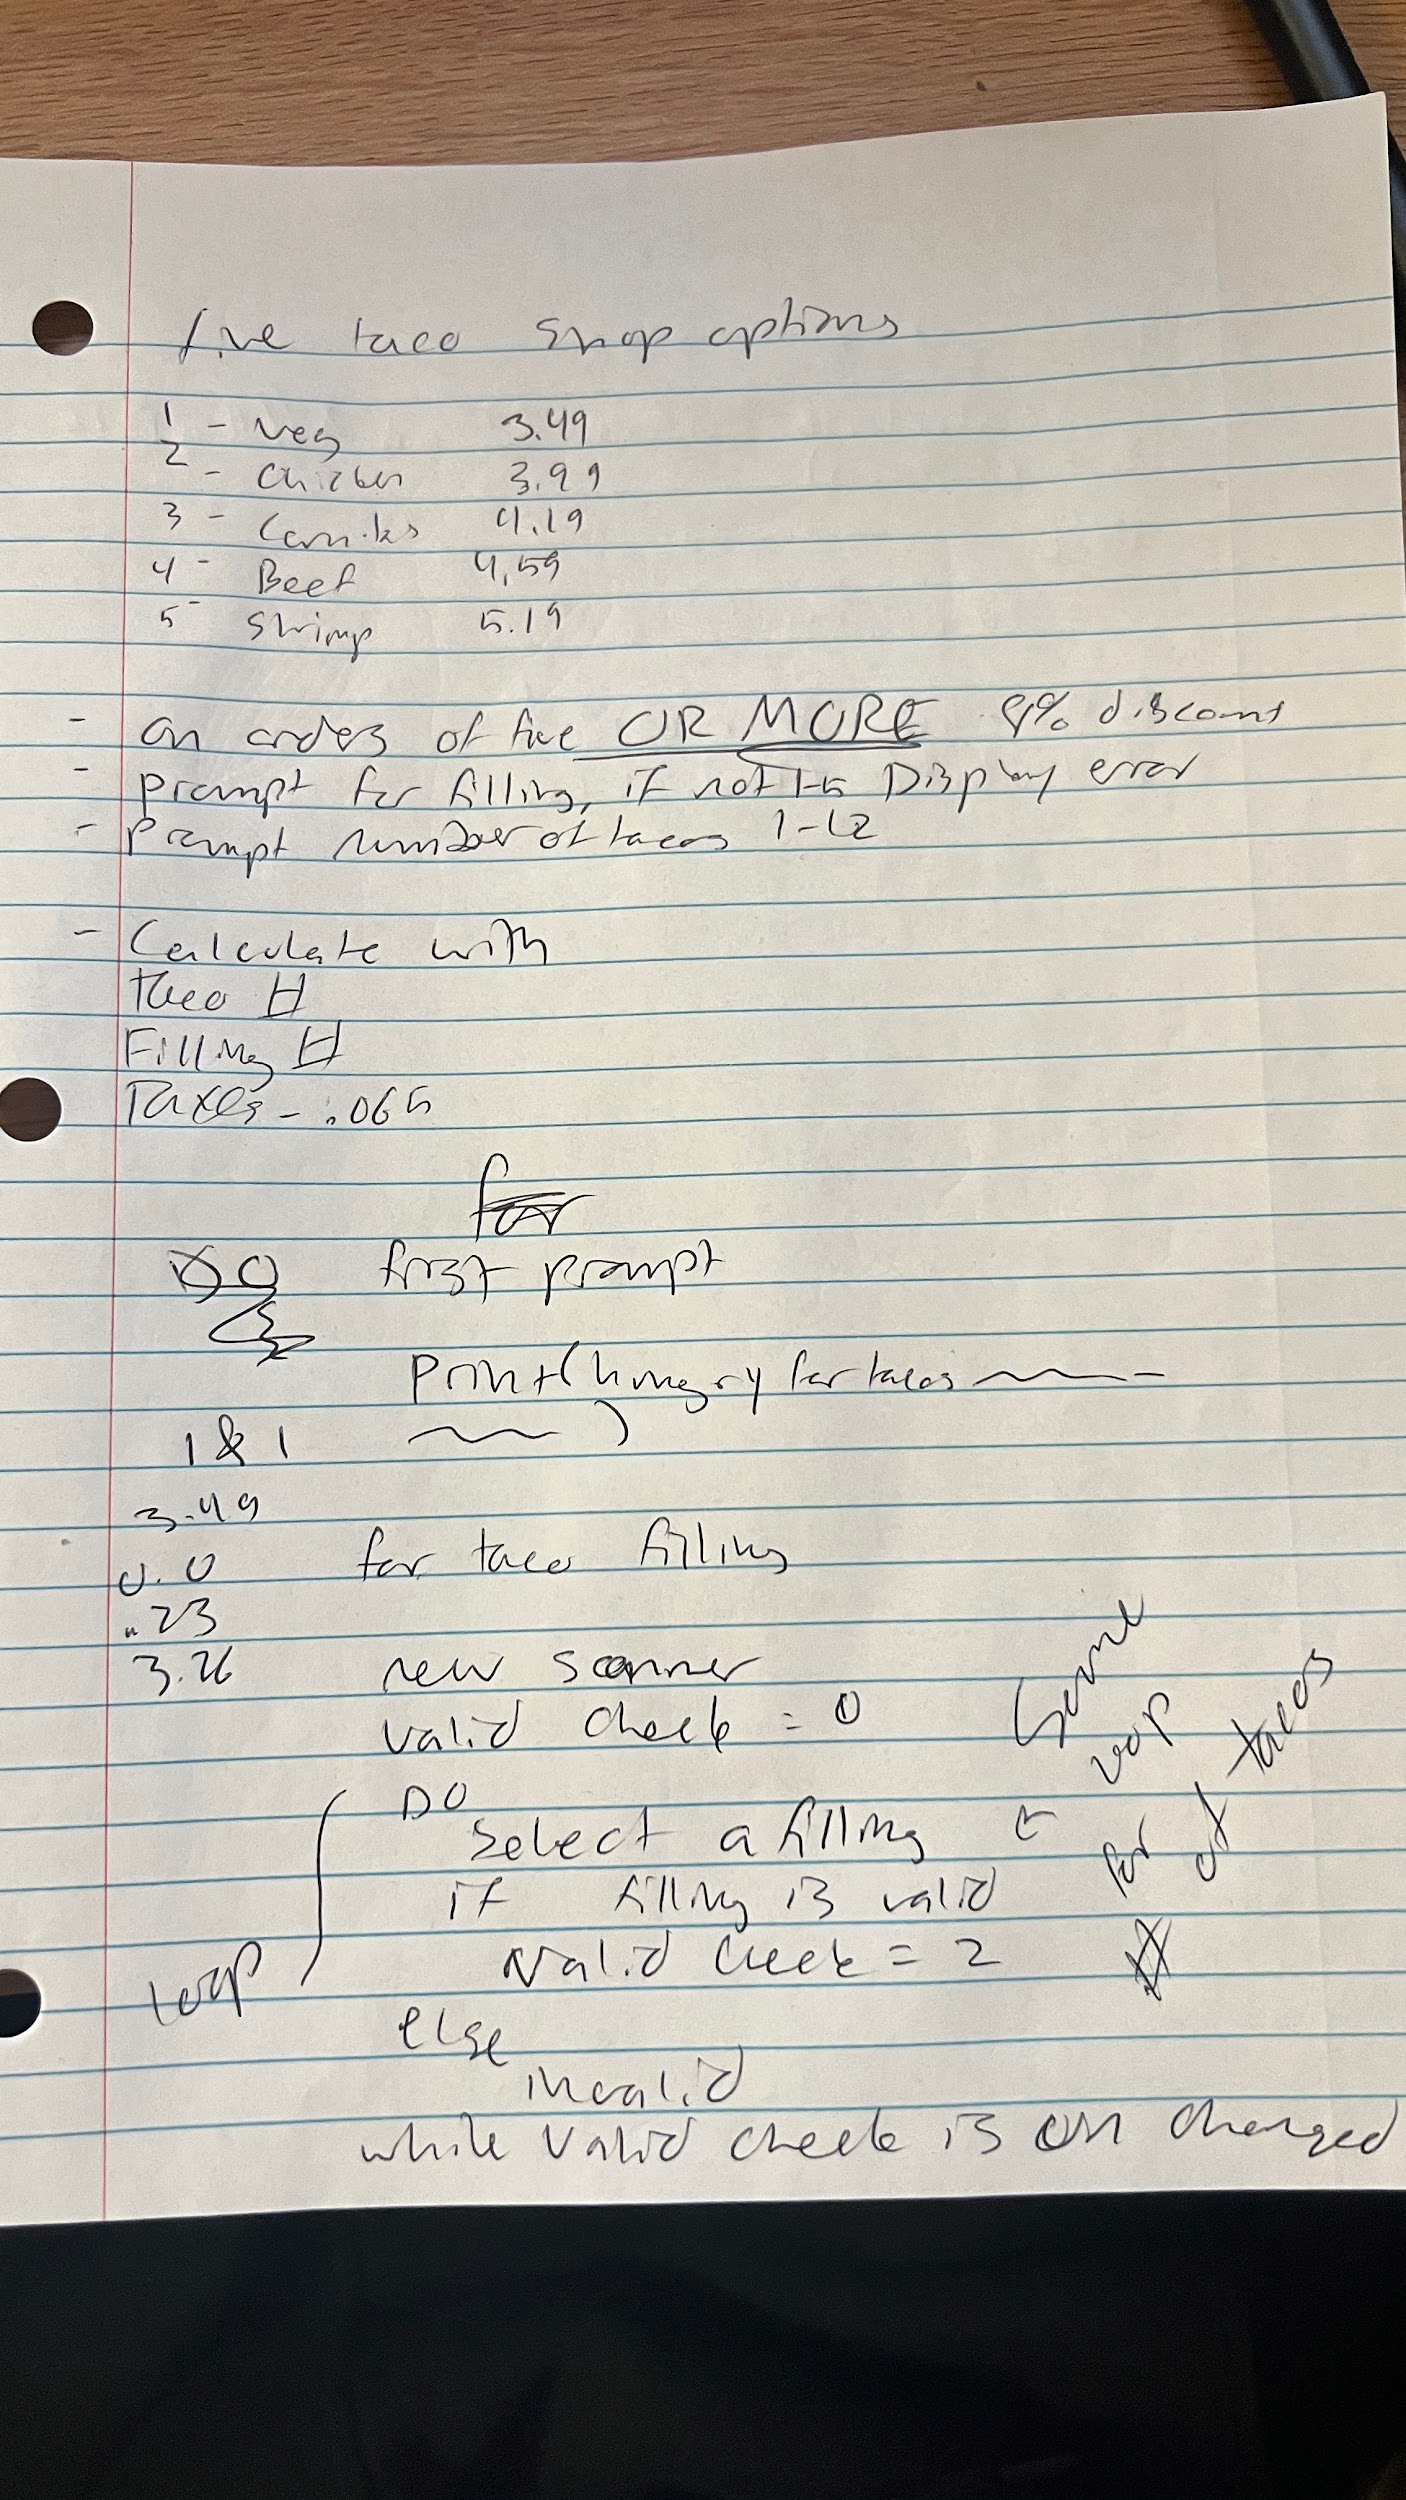 five taco shop options
1 - veg 3.49
2 - Chicken 3.99
3 - Carnitas 4.19
4 - Beef 4,59
5 - Shrimp 5.19
- on orders of five OR MORE % discount
- prompt for filling, if not 1-5 Display error
- Prompt number of tacos 1-12
- Calculate with
taco #
Filling #
Taxes - .065
for
DO first prompt
print(hungry for tacos
1 & 1 )
3.49
0.0 for taco filling
.23
3.26 new scanner
valid check = 0
DO
select a filling
if filling is valid
valid check = 2
loop
else
invalid
while valid check is un changed
Same
loop
for
#
of
tacos